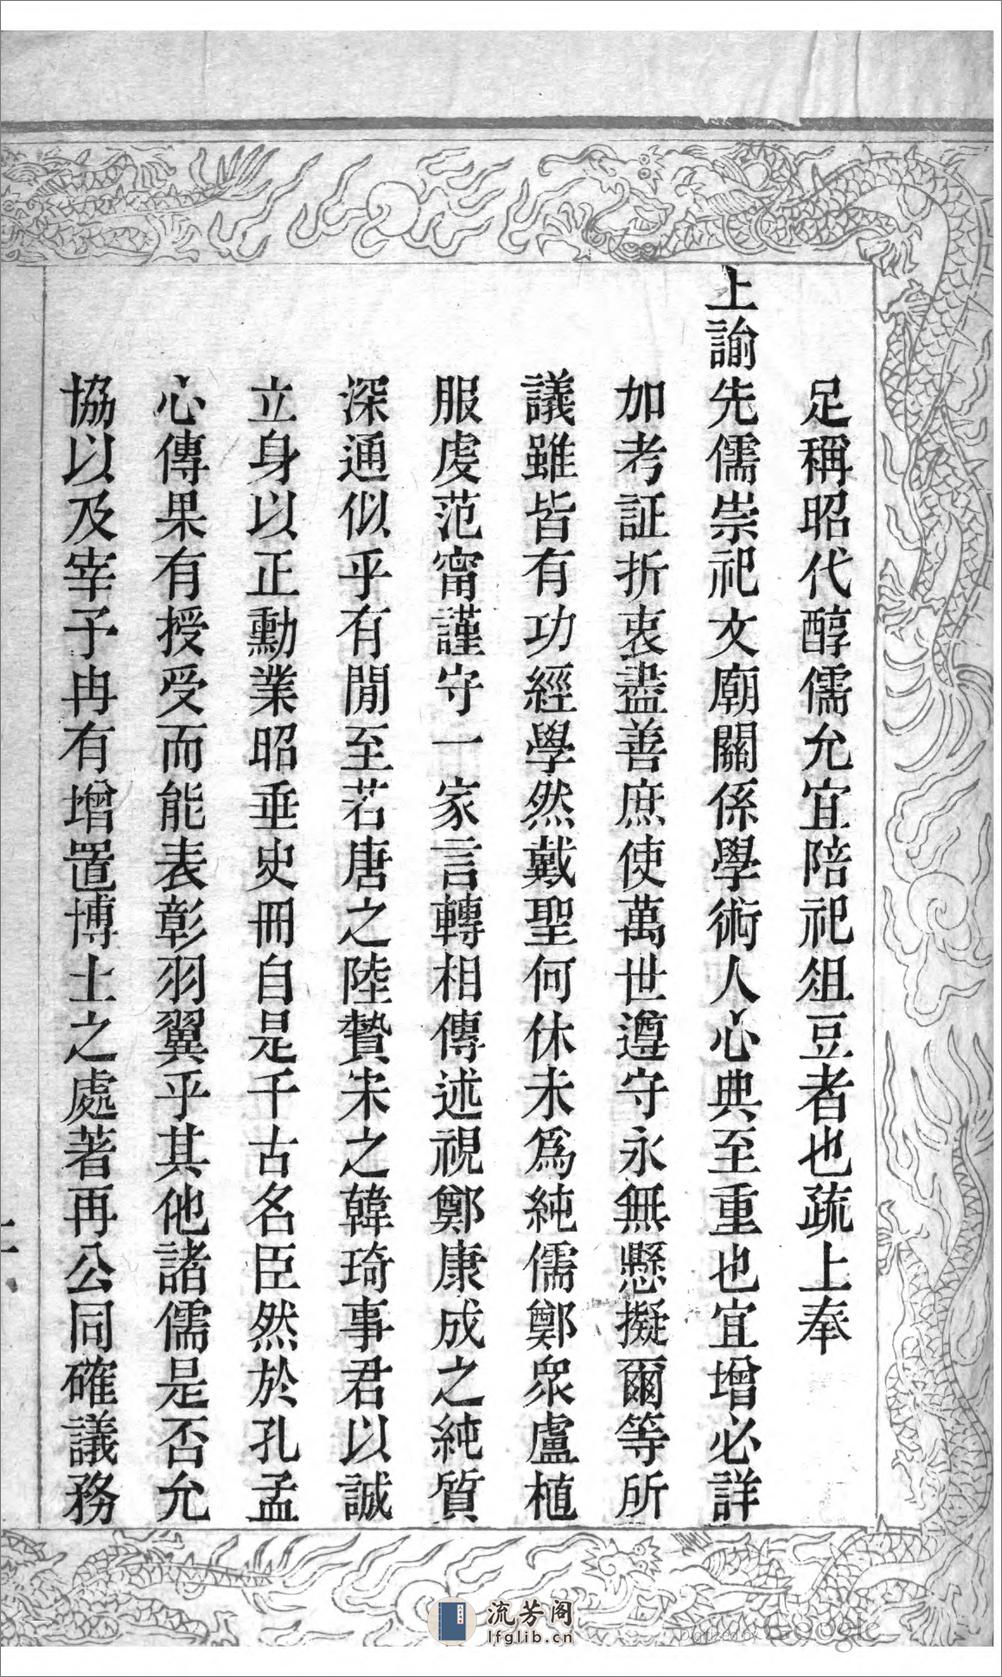 足稱昭代醇儒允宜陪祀俎豆者也疏上奉
上諭先儒崇祀文廟關係學術人心典至重也宜增必詳
加考証折衷盡善庶使萬世遵守永無懸擬爾等所
議雖皆有功經學然戴聖何休未爲純儒鄭衆盧植
服虔范甯謹守一家言轉相傳述視鄭康成之純質
深通似乎有閒至若唐之陸贄宋之韓琦事君以誠
立身以正勳業昭垂史冊自是千古名臣然於孔孟
心傳果有授受而能表彰羽翼乎其他諸儒是否允
協以及宰予冉有增置博士之處著再公同確議務
流芳阁
lfglib.cn
Google